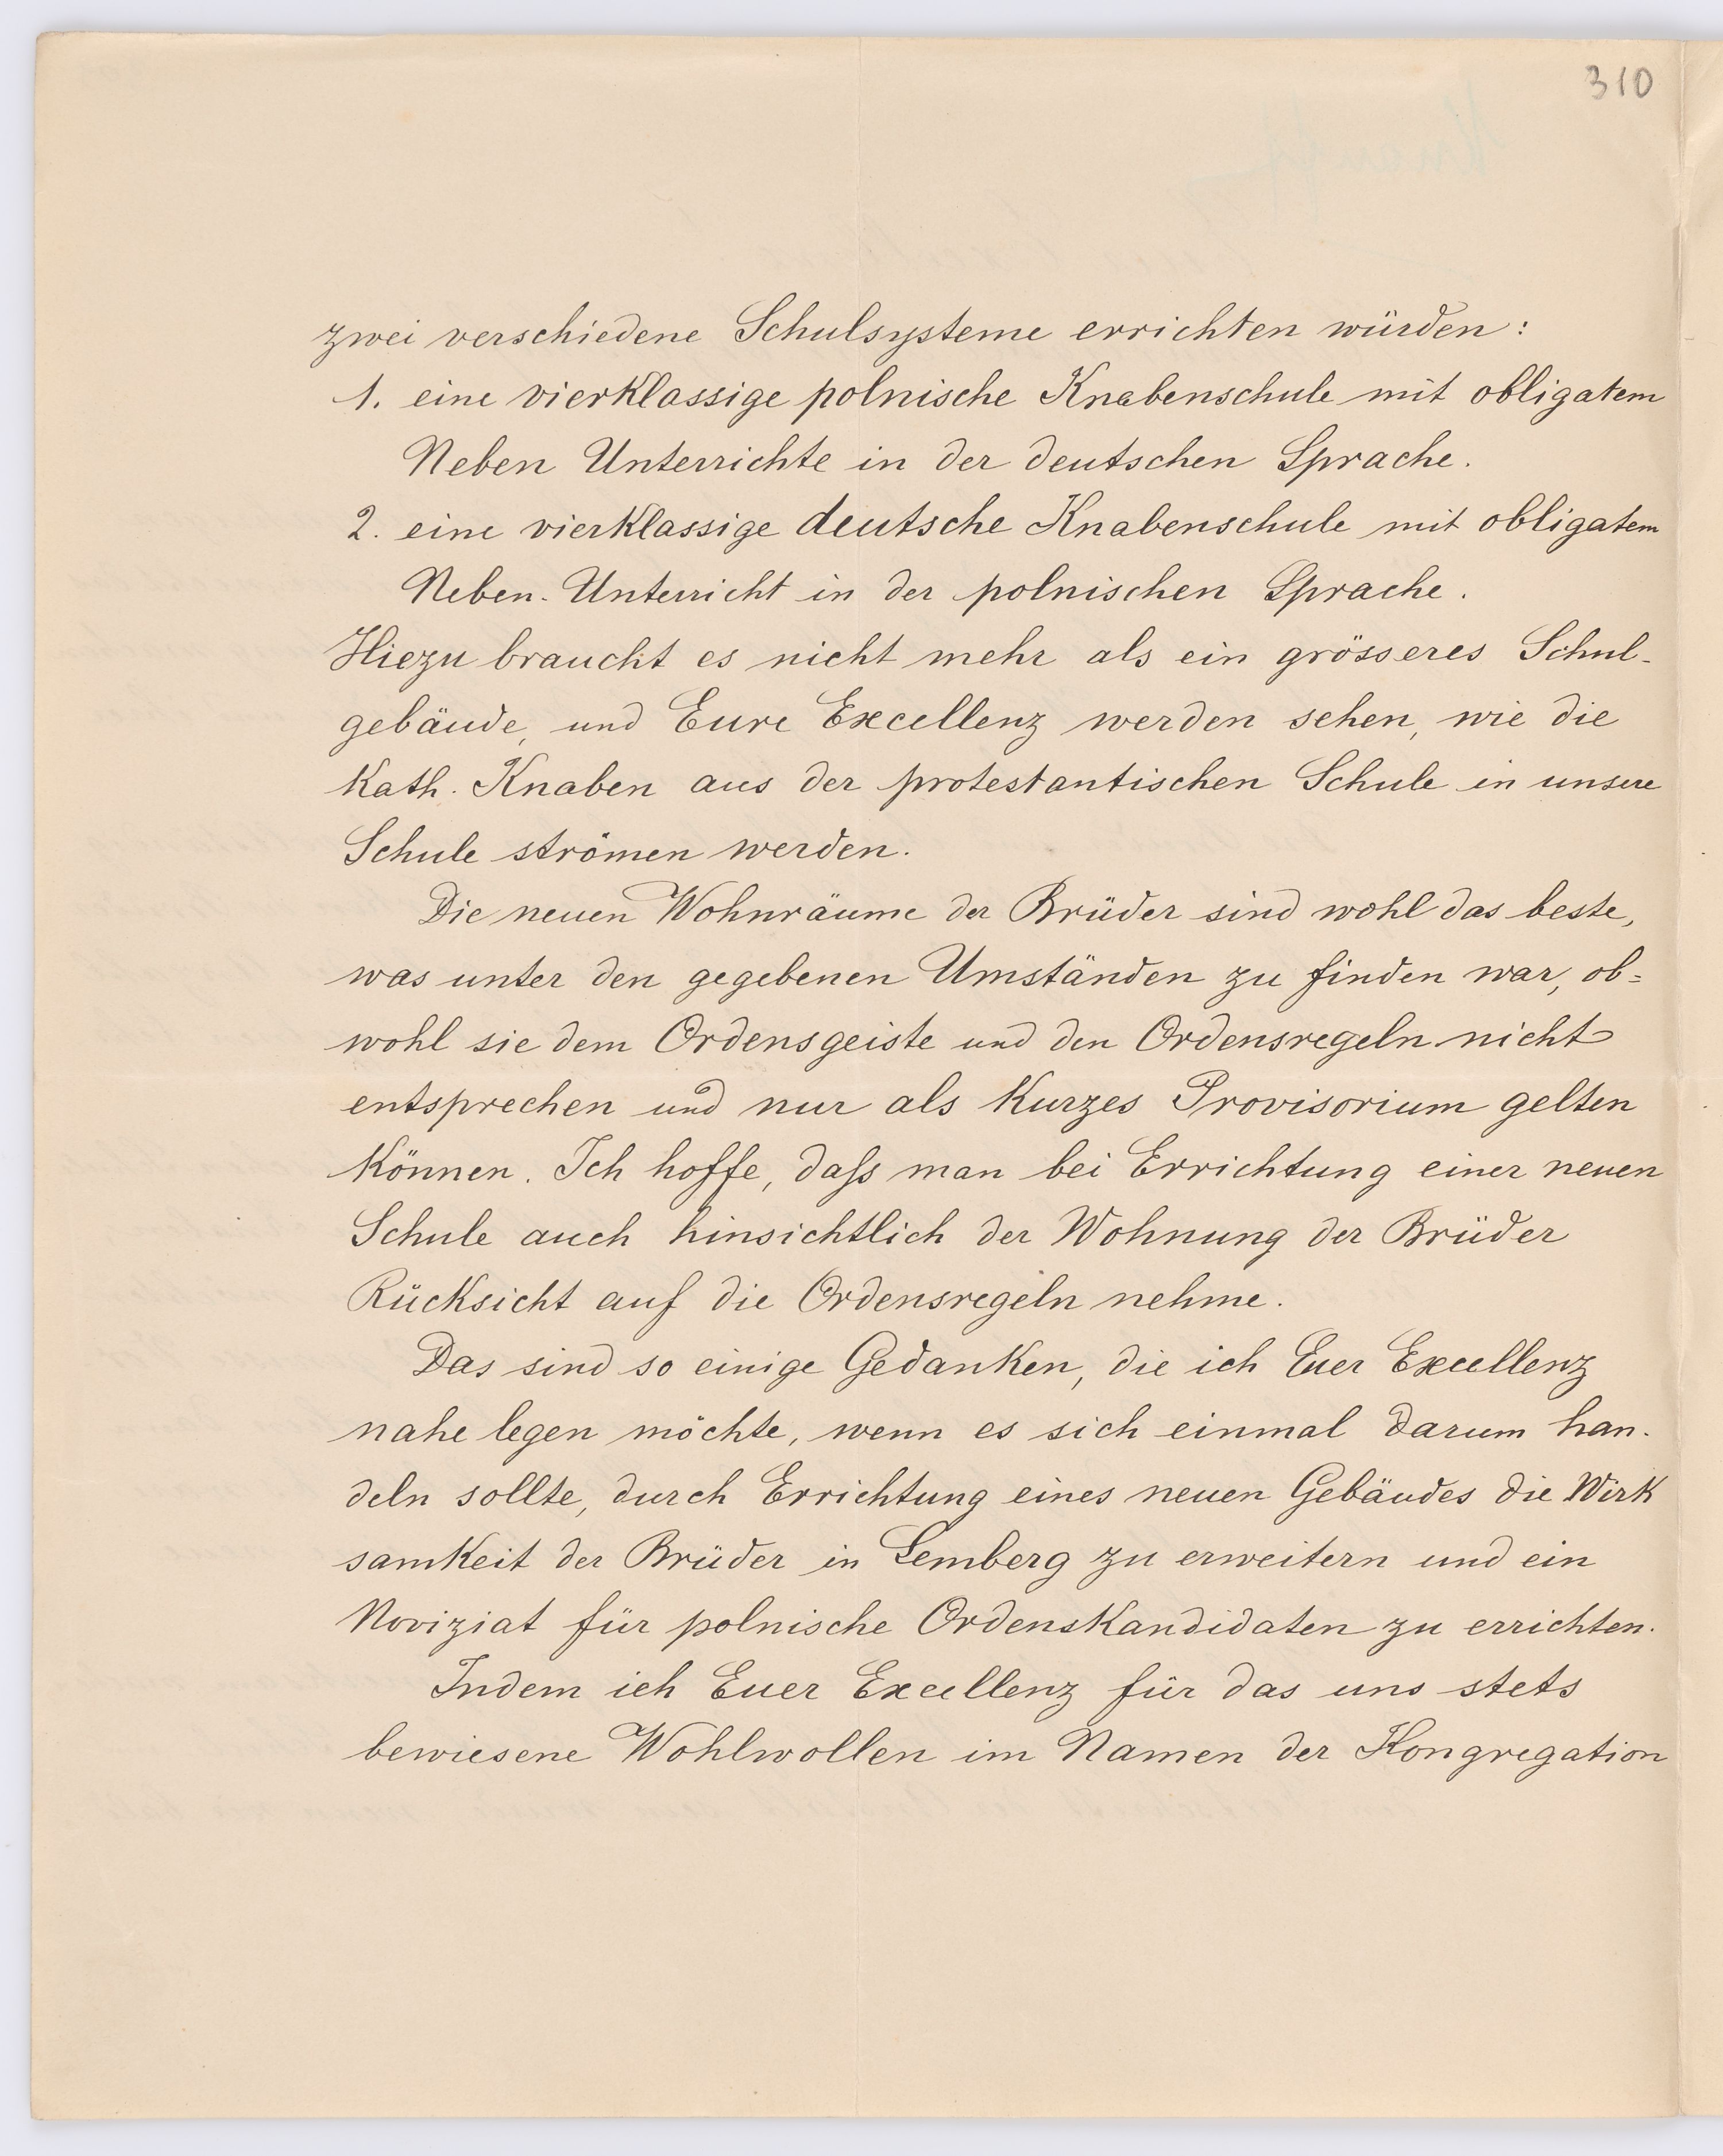 310
zwei verschiedene Schulsysteme errichten würden:
1. eine vierklassige polnische Knabenschule mit obligatem
Neben Unterrichte in der deutschen Sprache.
2. eine vierklassige deutsche Knabenschule mit obligatem
Neben-Unterricht in der polnischen Sprache.
Hiezu braucht es nicht mehr als ein grösseres Schul-
gebäude, und Eure Excellenz werden sehen, wie die
kath. Knaben aus der protestantischen Schule in unsere
Schule strömen werden.
Die neuen Wohnräume der Brüder sind wohl das beste,
was unter den gegebenen Umständen zu finden war, ob=
wohl sie dem Ordensgeiste und den Ordensregeln nicht
entsprechen und nur als kurzes Provisorium gelten
können. Ich hoffe, daſs man bei Errichtung einer neuen
Schule auch hinsichtlich der Wohnung der Brüder
Rücksicht auf die Ordensregeln nehme.
Das sind so einige Gedanken, die ich Euer Excellenz
nahe legen möchte, wenn es sich einmal darum han-
deln sollte, durch Errichtung eines neuen Gebäudes die Wirk
samkeit der Brüder in Lemberg zu erweitern und ein
Noviziat für polnische Ordenskandidaten zu errichten.
Indem ich Euer Excellenz für das uns stets
bewiesene Wohlwollen im Namen der Kongregation